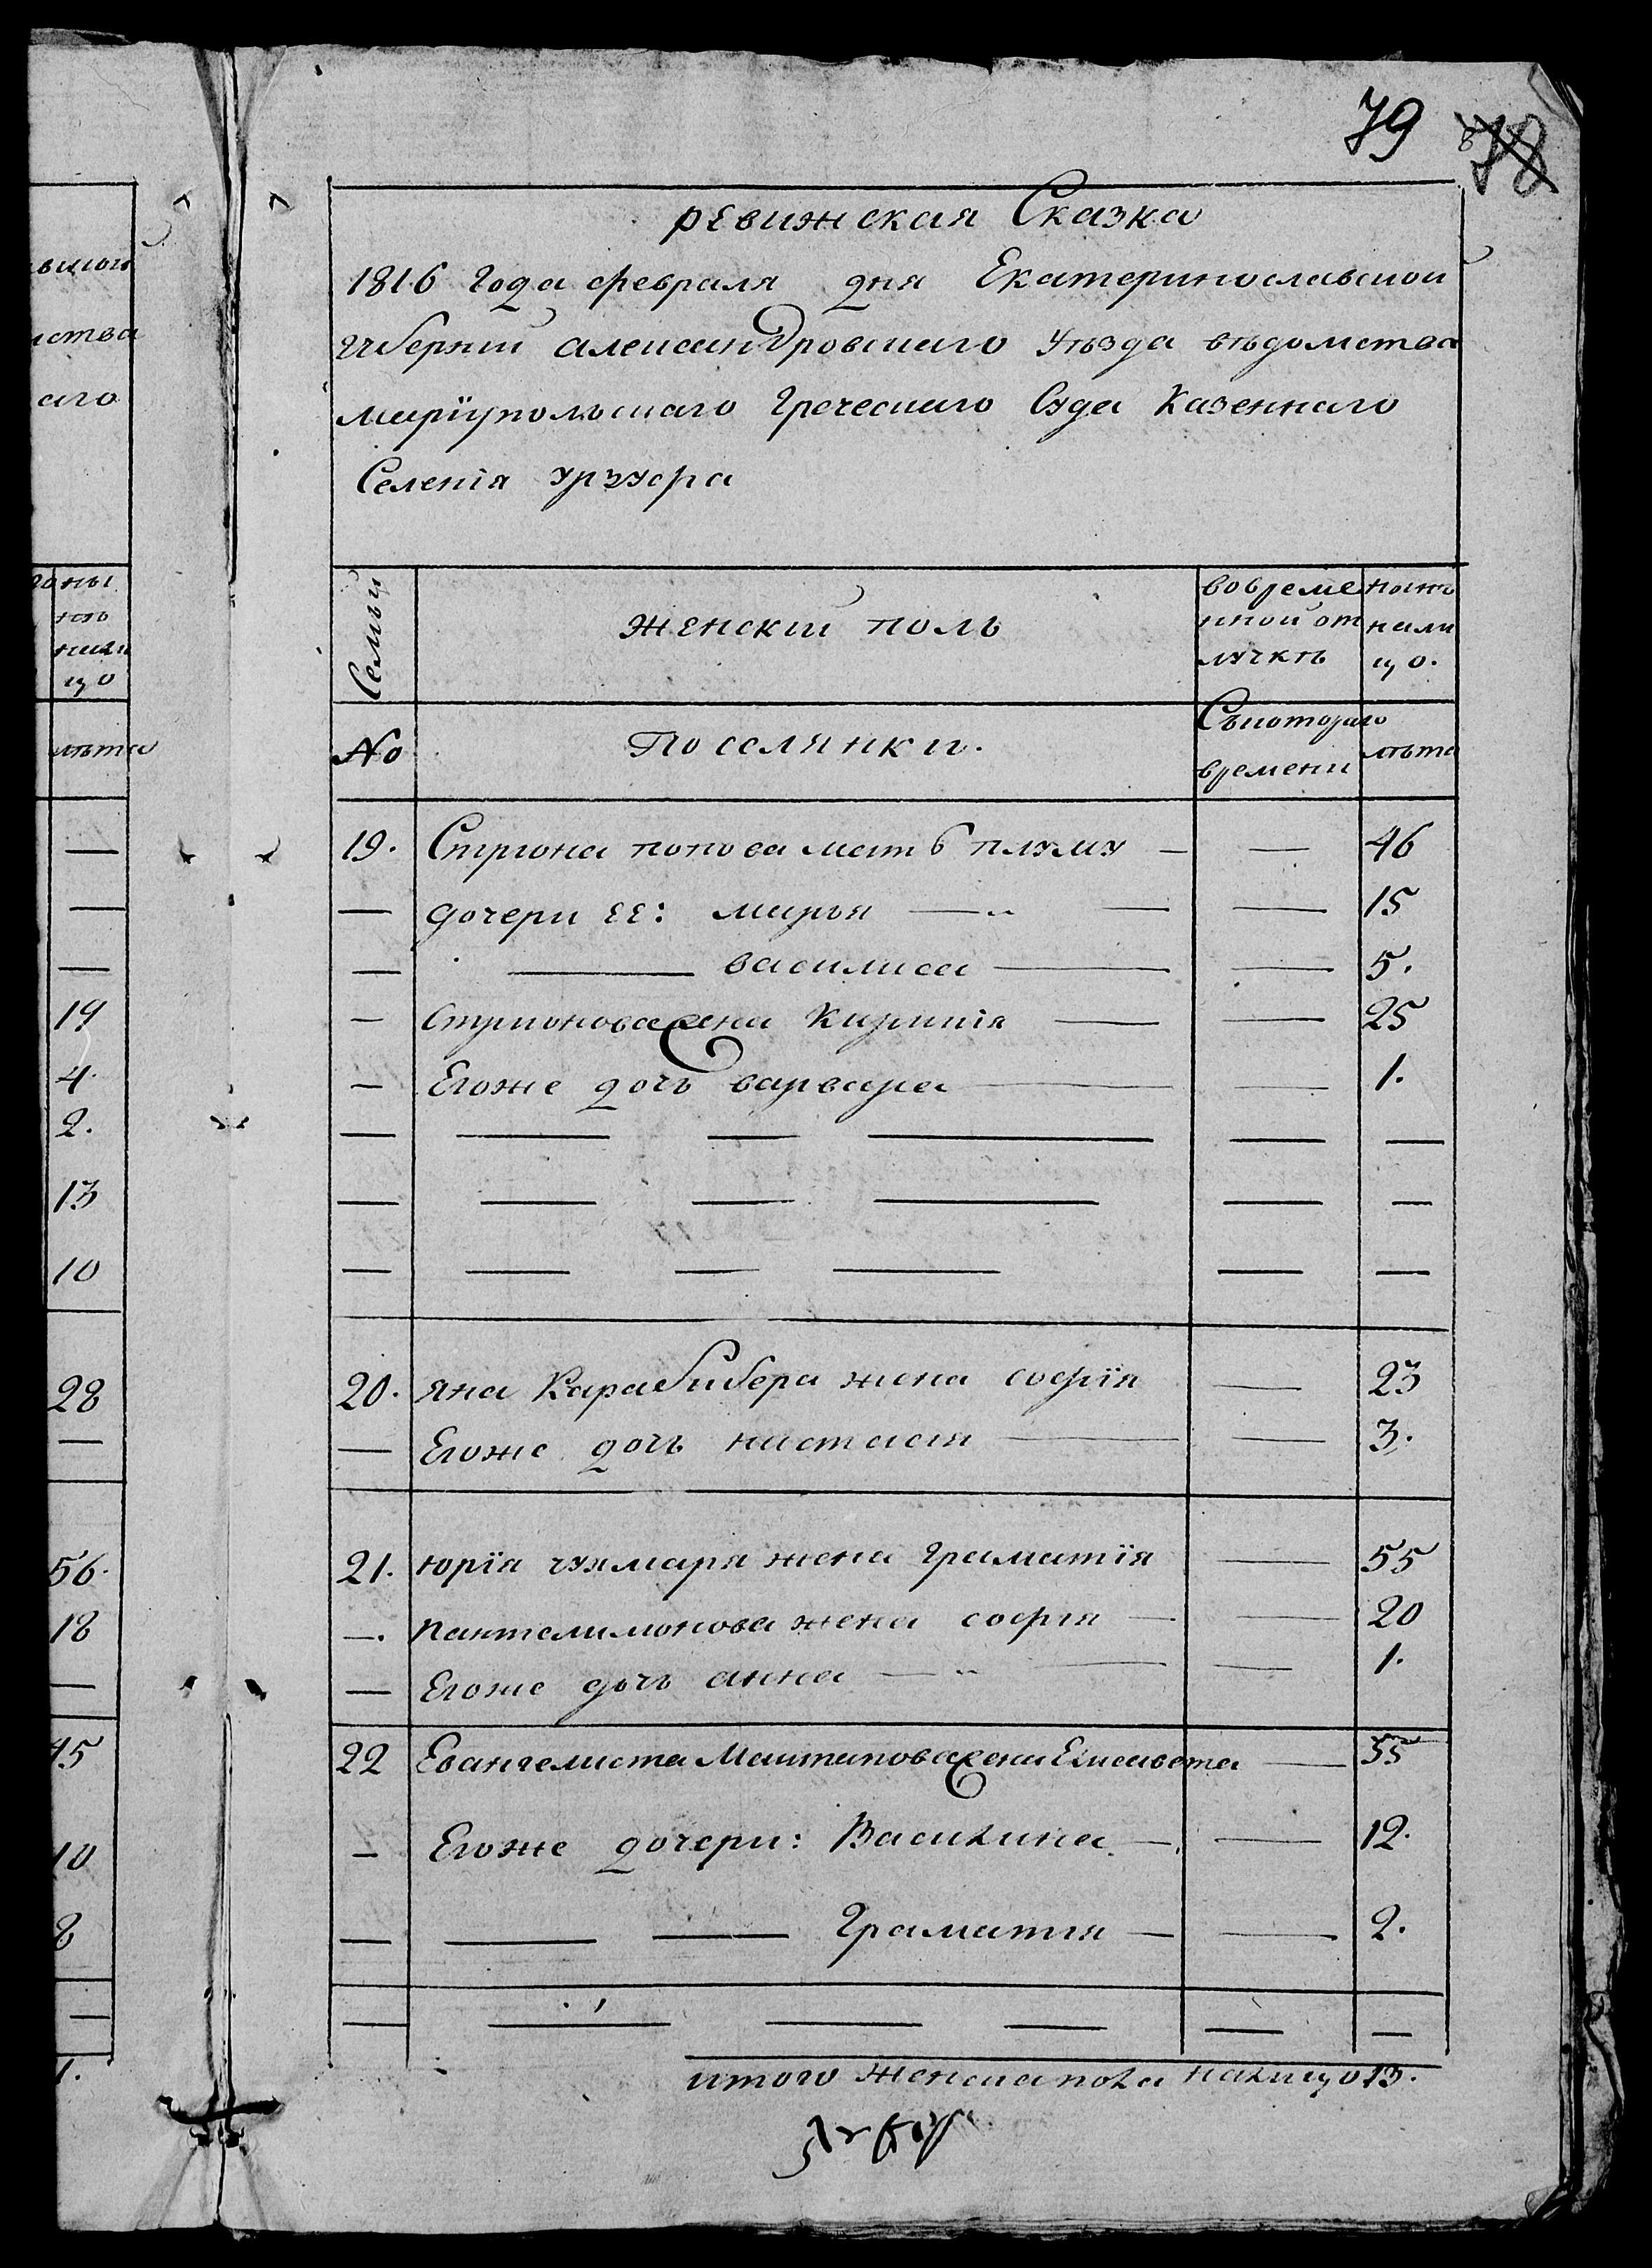 79 78
ревижская Сказка
1816 года февраля дня Екатеринославской
губернїи александровскаго уѣзда вѣдомства
марїупольскаго греческаго Суда Казеннаго
Селенїя урзуфа
Семьи
женскїй полъ
вовреме
нной от
лучкѣ
нынѣ
нали
цо.
No
Поселянки.
Съкотораго
времени
лѣта
19. Стриона попова мать плуму — — 46
— дочери ее: марья — — — 15
— — василиса — — 5.
— Стрионова жена Кирикія — — 25
— Егоже дочь варвара — — 1.
— — — — — —
— — — — — —
— — — — — —
20. яна Карабибера жена софїя — 23
— Егоже дочь настасія — — 3.
21. юрїя чухмаря жена граматїя — 55
—. пантелимонова жена софія — — 20
— Егоже дочь анна — — — 1.
22 Евангелиста жена Елисавета — 55
— Егоже дочери: Василина — — 12.
— — — Граматія — — 2.
— — — — — —
итого женска пола налицо 13.
вской
мства
аго
ны
нѣ
нали
цо
лѣта
—
—
—
19
4.
2.
13
10
28
—
56.
18
—
45
10
8
—
1.